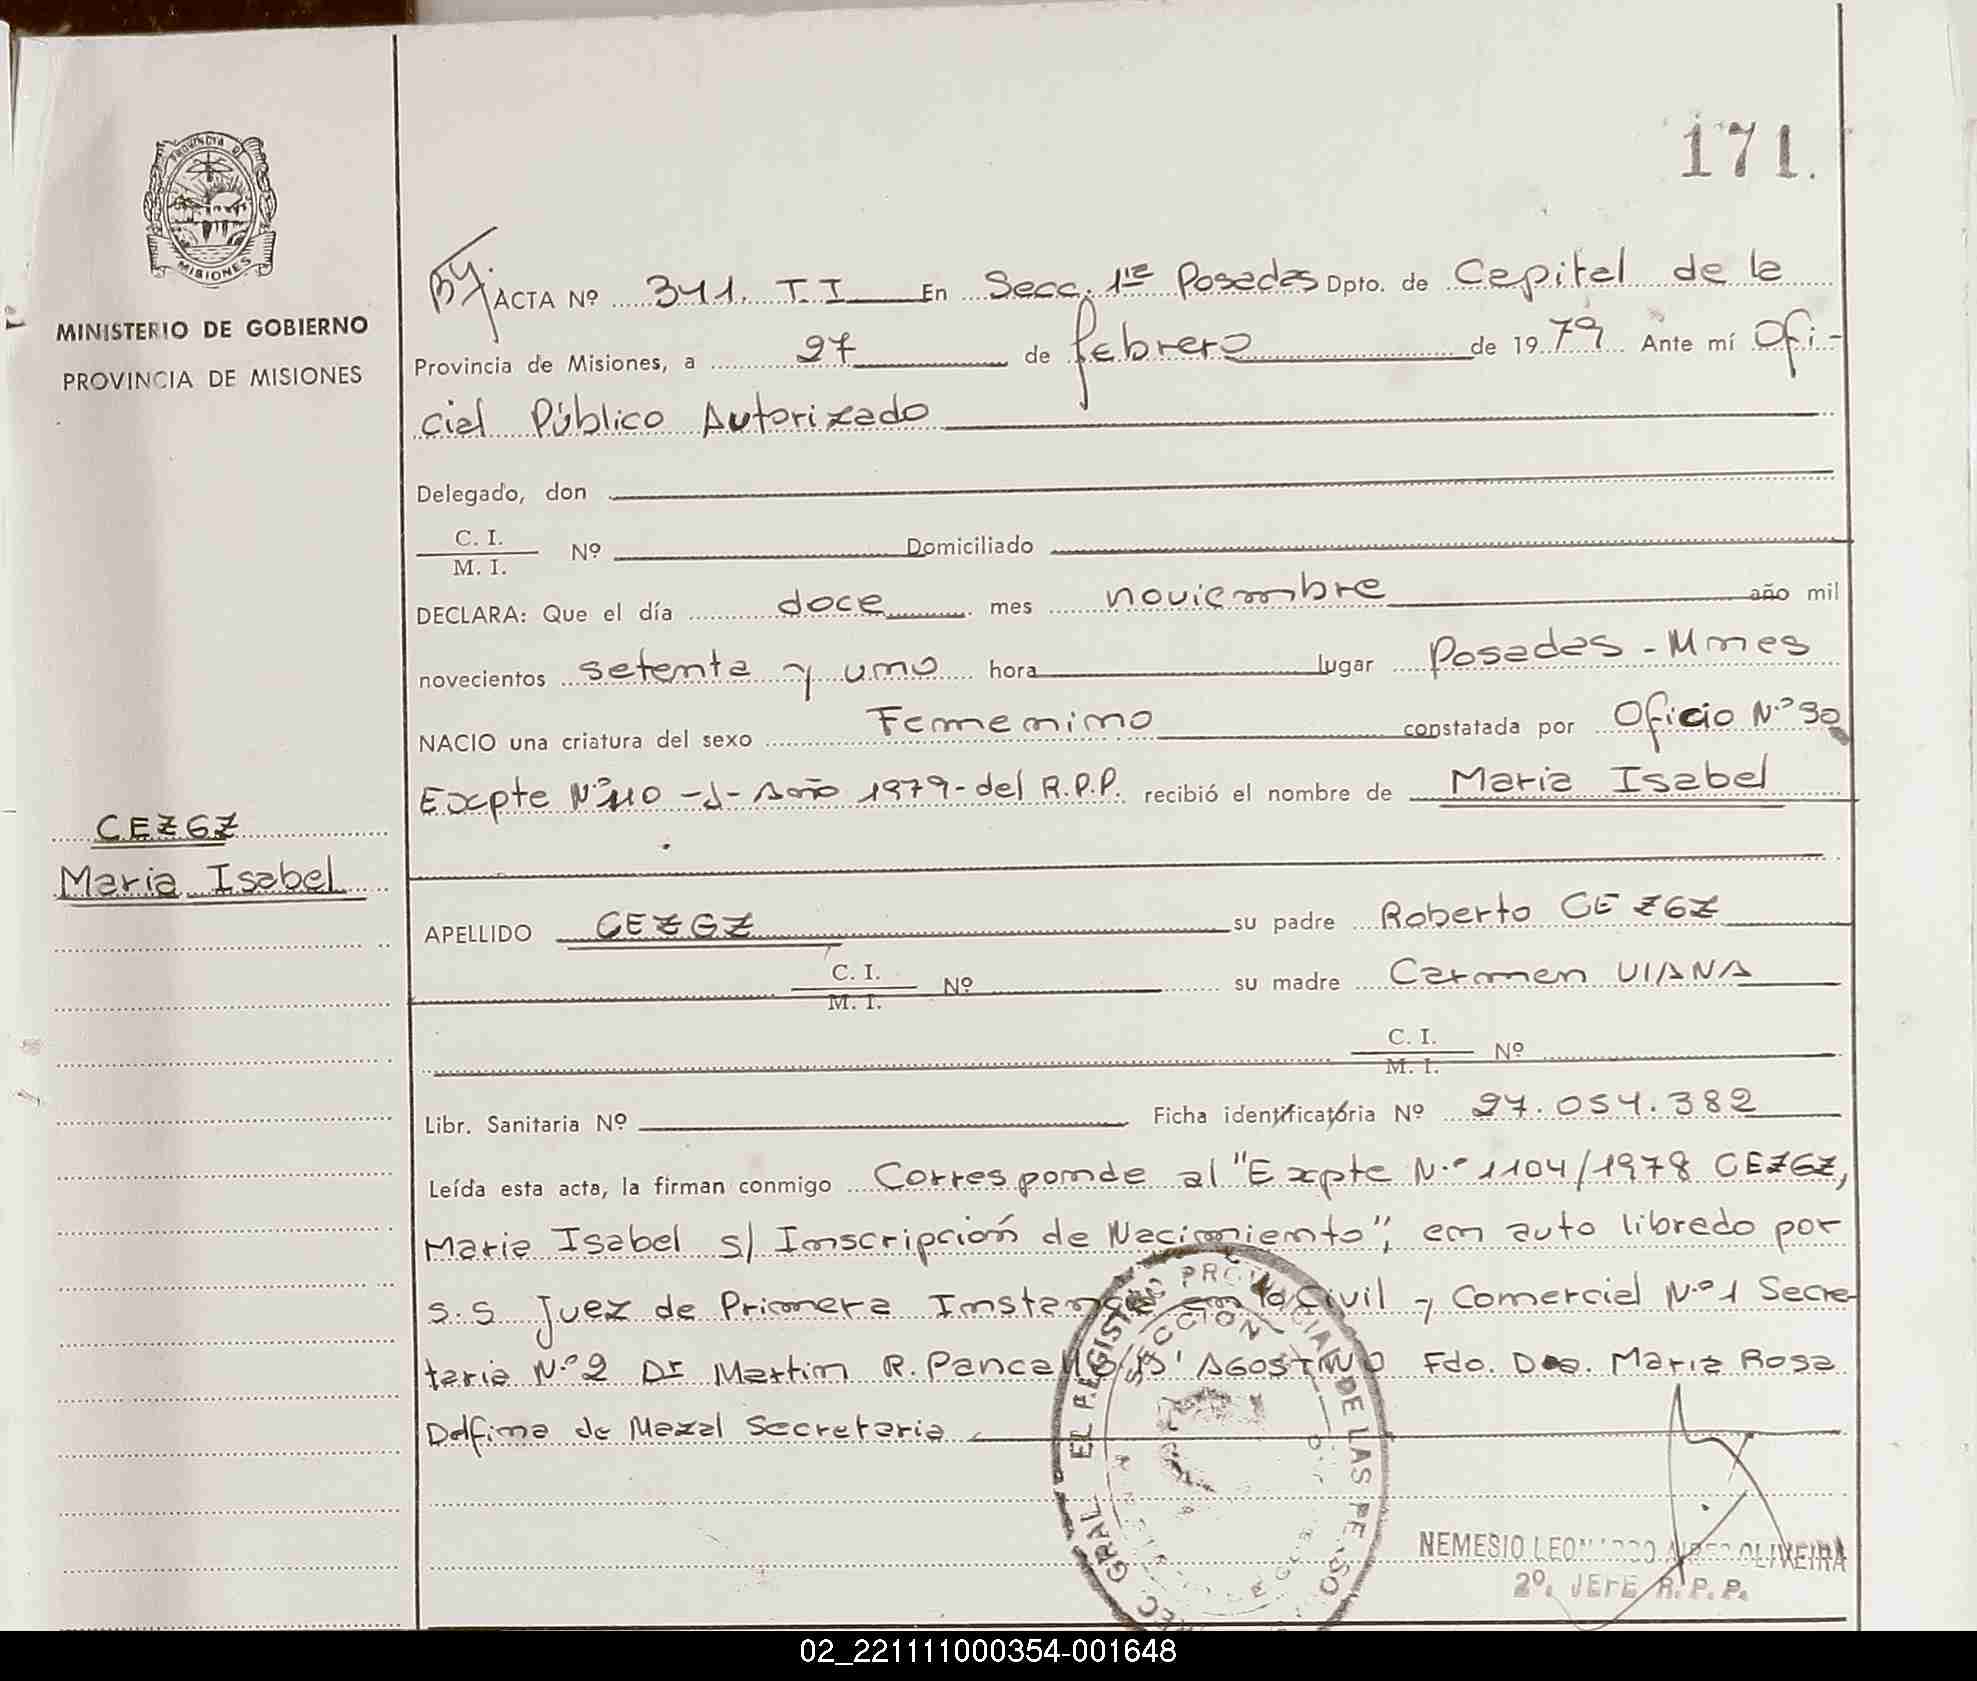 171.
PROVINCIA DE
MISIONES
MINISTERIO DE GOBIERNO
PROVINCIA DE MISIONES
CEZGZ
Maria Isabel
ACTA Nº 341. T.I En Secc. 1ra Posadas Dpto. de Capital de la
Provincia de Misiones, a 27 de febrero de 1979 Ante mí Ofi-
cial Público Autorizado
Delegado, don
C. I.
M. I. Nº Domiciliado
DECLARA: Que el día doce mes noviembre año mil
novecientos setenta y uno hora lugar Posadas - Mnes
NACIO una criatura del sexo Femenino constatada por Oficio N.º 30
Expte Nº 110 -J- Año 1979- del R.P.P. recibió el nombre de Maria Isabel
APELLIDO CEZGZ su padre Roberto CEZGZ
C. I.
M. I. Nº su madre Carmen VIANA
C. I.
M. I. Nº
Libr. Sanitaria Nº Ficha identificatória Nº 27.054.382
Leída esta acta, la firman conmigo Corresponde al "Expte N.º 1104/1978 CEZGZ,
Maria Isabel s/ Inscripción de Nacimiento", en auto librado por
S.S Juez de Primera Instancia en lo Civil y Comercial N.º 1 Secre-
taria N.º 2 Dr Martin R. Pancallo D'AGOSTINO Fdo. Dra. Maria Rosa
Delfina de Mazal Secretaria
GRAL EL REGISTRO PROVINCIAL DE LAS PERSO
SECCION
NEMESIO LEONARDO AIRES OLIVEIRA
2º. JEFE R. P. P.
02_221111000354-001648